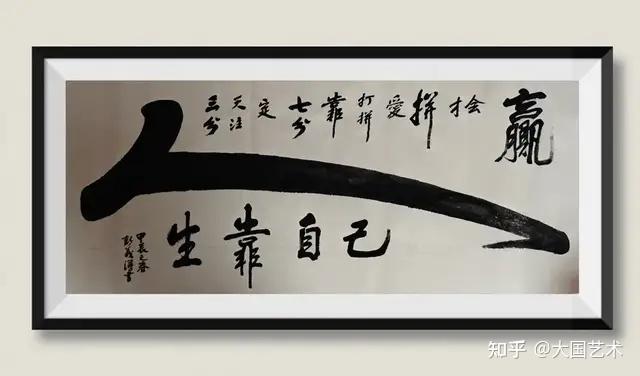 三分天注定七分靠打拼愛拼才会赢
人
生靠自己
甲辰之春
書
知乎 @大国艺术